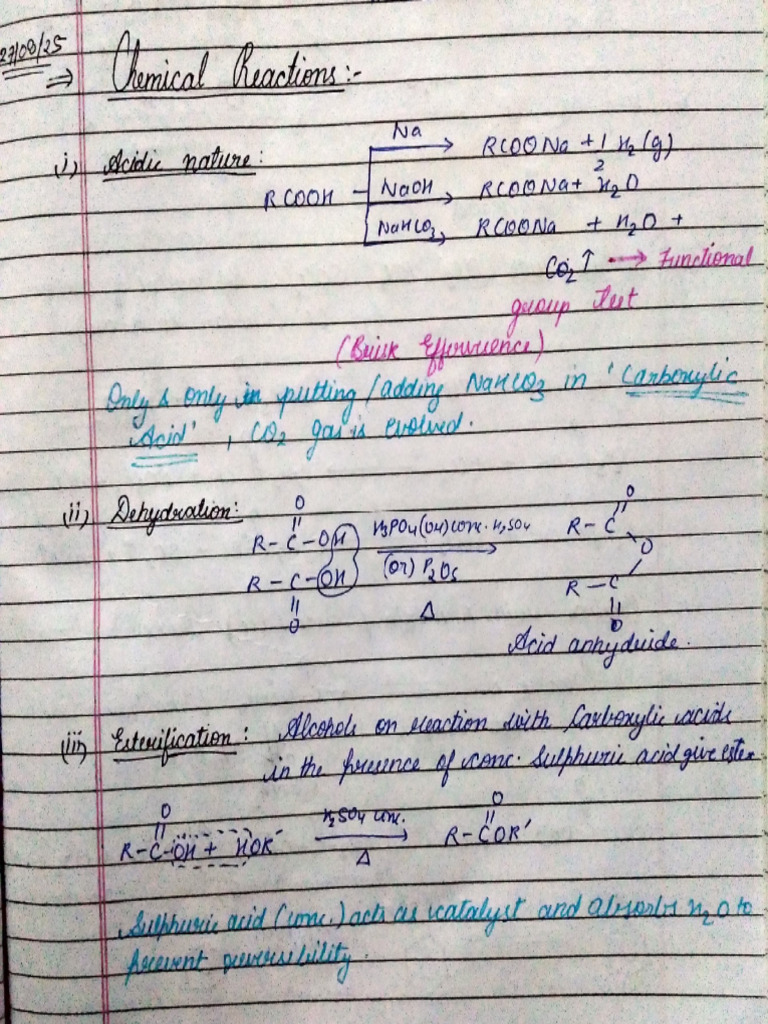 27/08/25
⇒ Chemical Reactions:-
i) Acidic nature:
RCOOH
Na → RCOONa + 1/2 H2(g)
NaOH → RCOONa + H2O
NaHCO3 → RCOONa + H2O +
CO2↑ → Functional
group Test
(Brisk Effervescence)
Only & only in putting/adding NaHCO3 in 'Carboxylic
Acid', CO2 gas is evolved.
ii) Dehydration:
O O
|| ||
R-C-OH H3PO4(OH)conc. H2SO4 R-C
R-C-OH (Or) P2O5 O
|| Δ R-C
O ||
O
Acid anhydride.
(iii) Esterification: Alcohols on reaction with Carboxylic acids
in the presence of conc. Sulphuric acid give ester
O O
|| ||
R-C-OH + HOR' H2SO4 conc. → R-C OR'
Δ
Sulphuric acid (conc.) acts as catalyst and absorbs H2O to
prevent reversibility.